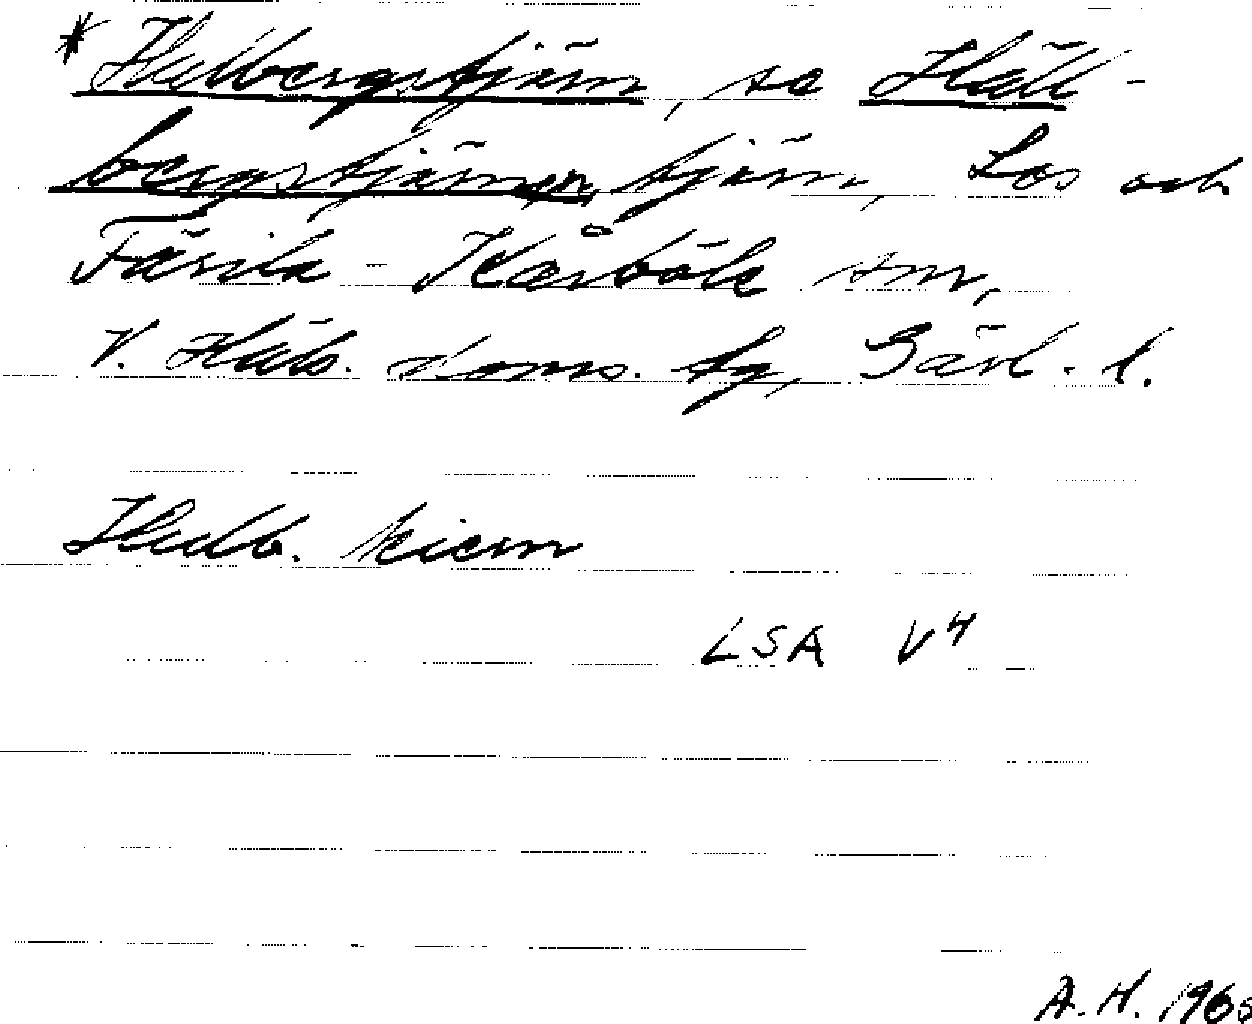 * Hulbergstjärn, se Häll-
bergstjärnen, tjärn, Los och
Färila-Kårböle snr,
V. Häls. doms. tg, Gävl. l.
Hulb. kiern
LSA V4
A. H. 1965